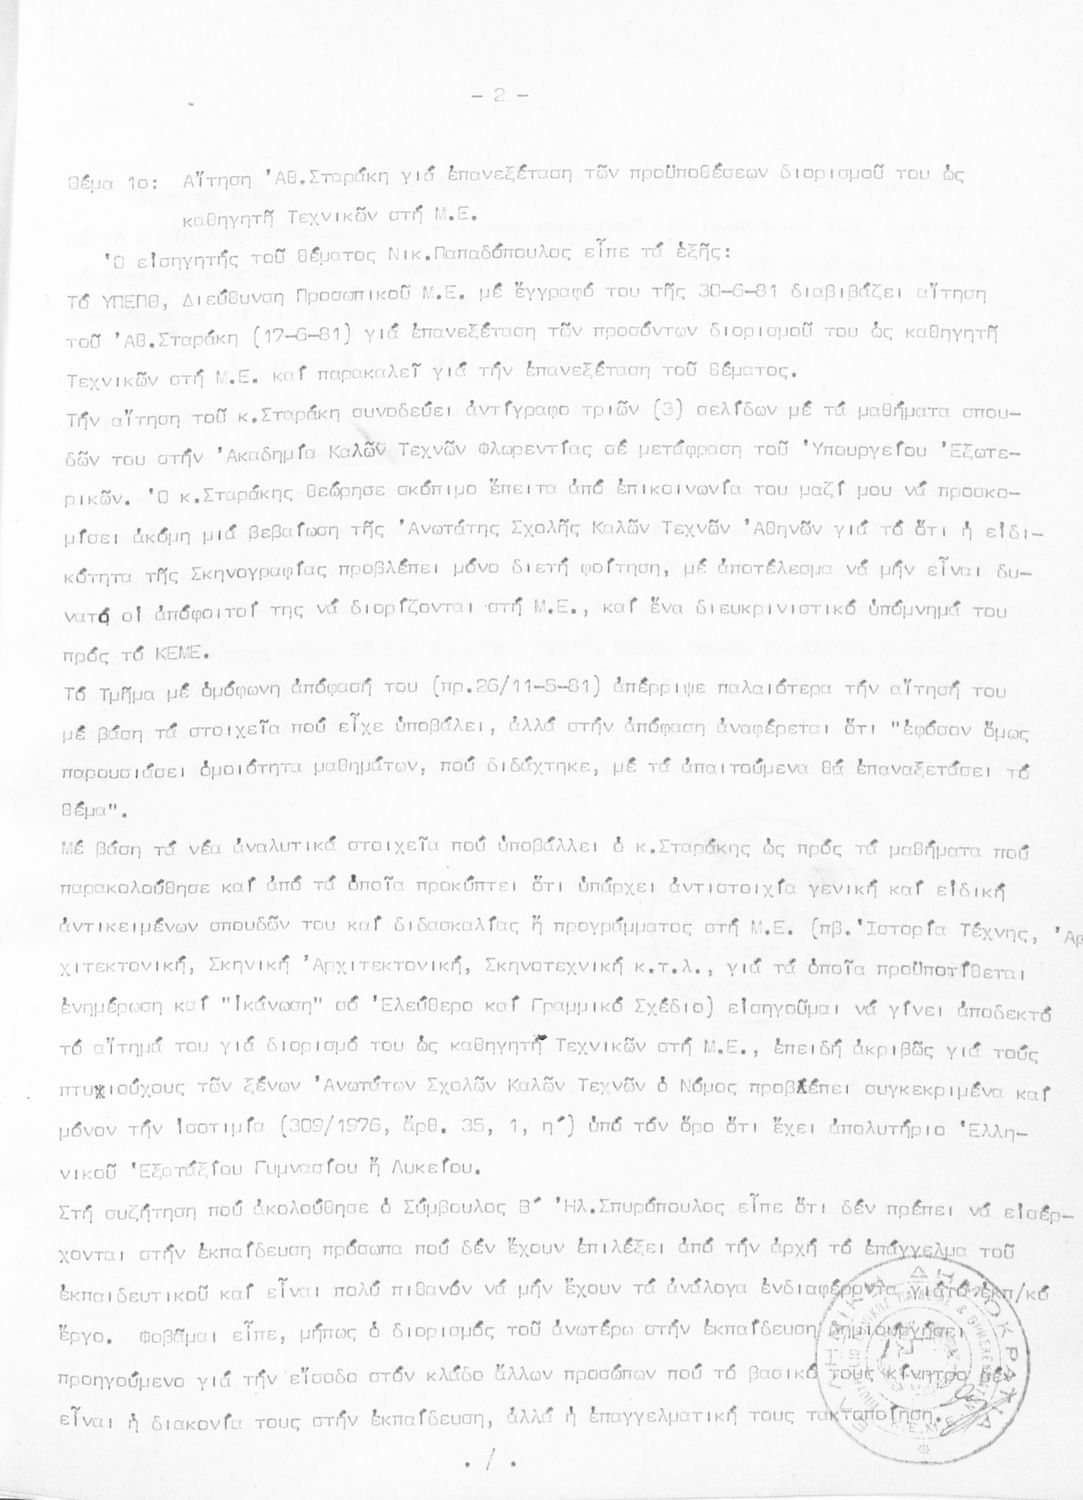 - 2 -
Θέμα 1ο: Αἴτηση Ἀθ.Σταράκη γιά ἐπανεξέταση τῶν προϋποθέσεων διορισμοῦ του ὡς
καθηγητῆ Τεχνικῶν στή Μ.Ε.
Ὁ εἰσηγητής τοῦ θέματος Νικ.Παπαδόπουλος εἶπε τά ἑξῆς:
Τό ΥΠΕΠΘ, Διεύθυνση Προσωπικοῦ Μ.Ε. μέ ἔγγραφό του τῆς 30-6-81 διαβιβάζει αἴτηση
τοῦ Ἀθ.Σταράκη (17-6-81) γιά ἐπανεξέταση τῶν προσόντων διορισμοῦ του ὡς καθηγητῆ
Τεχνικῶν στή Μ.Ε. καί παρακαλεῖ γιά τήν ἐπανεξέταση τοῦ θέματος.
Τήν αἴτηση τοῦ κ.Σταράκη συνοδεύει ἀντίγραφο τριῶν (3) σελίδων μέ τά μαθήματα σπου-
δῶν του στήν Ἀκαδημία Καλῶν Τεχνῶν Φλωρεντίας σέ μετάφραση τοῦ Ὑπουργείου Ἐξωτε-
ρικῶν. Ὁ κ.Σταράκης θεώρησε σκόπιμο ἔπειτα ἀπό ἐπικοινωνία του μαζί μου νά προσκο-
μίσει ἀκόμη μιά βεβαίωση τῆς Ἀνωτάτης Σχολῆς Καλῶν Τεχνῶν Ἀθηνῶν γιά τό ὅτι ἡ εἰδι-
κότητα τῆς Σκηνογραφίας προβλέπει μόνο διετή φοίτηση, μέ ἀποτέλεσμα νά μήν εἶναι δυ-
νατό οἱ ἀπόφοιτοί της νά διορίζονται στή Μ.Ε., καί ἕνα διευκρινιστικό ὑπόμνημά του
πρός τό ΚΕΜΕ.
Τό Τμῆμα μέ ὁμόφωνη ἀπόφασή του (πρ.26/11-5-81) ἀπέρριψε παλαιότερα τήν αἴτησή του
μέ βάση τά στοιχεῖα πού εἶχε ὑποβάλει, ἀλλά στήν ἀπόφαση ἀναφέρεται ὅτι "ἐφόσον ὅμως
παρουσιάσει ὁμοιότητα μαθημάτων, πού διδάχτηκε, μέ τά ἀπαιτούμενα θά ἐπαναξετάσει τό
θέμα".
Μέ βάση τά νέα ἀναλυτικά στοιχεῖα πού ὑποβάλλει ὁ κ.Σταράκης ὡς πρός τά μαθήματα πού
παρακολούθησε καί ἀπό τά ὁποῖα προκύπτει ὅτι ὑπάρχει ἀντιστοιχία γενική καί εἰδική
ἀντικειμένων σπουδῶν του καί διδασκαλίας ἤ προγράμματος στή Μ.Ε. (πβ.Ἱστορία Τέχνης, Ἀρ
χιτεκτονική, Σκηνική Ἀρχιτεκτονική, Σκηνοτεχνική κ.τ.λ., γιά τά ὁποῖα προϋποτίθεται
ἐνημέρωση καί "ἱκάνωση" σό Ἐλεύθερο καί Γραμμικό Σχέδιο) εἰσηγοῦμαι νά γίνει ἀποδεκτό
τό αἴτημά του γιά διορισμό του ὡς καθηγητῆ Τεχνικῶν στή Μ.Ε., ἐπειδή ἀκριβῶς γιά τούς
πτυχιούχους τῶν ξένων Ἀνωτάτων Σχολῶν Καλῶν Τεχνῶν ὁ Νόμος προβλέπει συγκεκριμένα καί
μόνον τήν ἰσοτιμία (309/1976, ἄρθ. 35, 1, η΄) ὑπό τόν ὅρο ὅτι ἔχει ἀπολυτήριο Ἑλλη-
νικοῦ Ἑξατάξίου Γυμνασίου ἤ Λυκείου.
Στή συζήτηση πού ἀκολούθησε ὁ Σύμβουλος Β΄ Ἠλ.Σπυρόπουλος εἶπε ὅτι δέν πρέπει νά εἰσέρ-
χονται στήν ἐκπαίδευση πρόσωπα πού δέν ἔχουν ἐπιλέξει ἀπό τήν ἀρχή τό ἐπάγγελμα τοῦ
ἐκπαιδευτικοῦ καί εἶναι πολύ πιθανόν νά μήν ἔχουν τά ἀνάλογα ἐνδιαφέροντα γιάτό ἐκπ/κό
ἔργο. Φοβᾶμαι εἶπε, μήπως ὁ διορισμός τοῦ ἀνωτέρω στήν ἐκπαίδευση δημιουργήσει
προηγούμενο γιά τήν εἴσοδο στόν κλάδο ἄλλων προσώπων πού τό βασικό τους κίνητρο δέν
εἶναι ἡ διακονία τους στήν ἐκπαίδευση, ἀλλά ἡ ἐπαγγελματική τους τακτοποίηση.
ΕΛΛΗΝΙΚΗ ΔΗΜΟΚΡΑΤΙΑ
Κ.Ε.Μ.Ε.
. / .